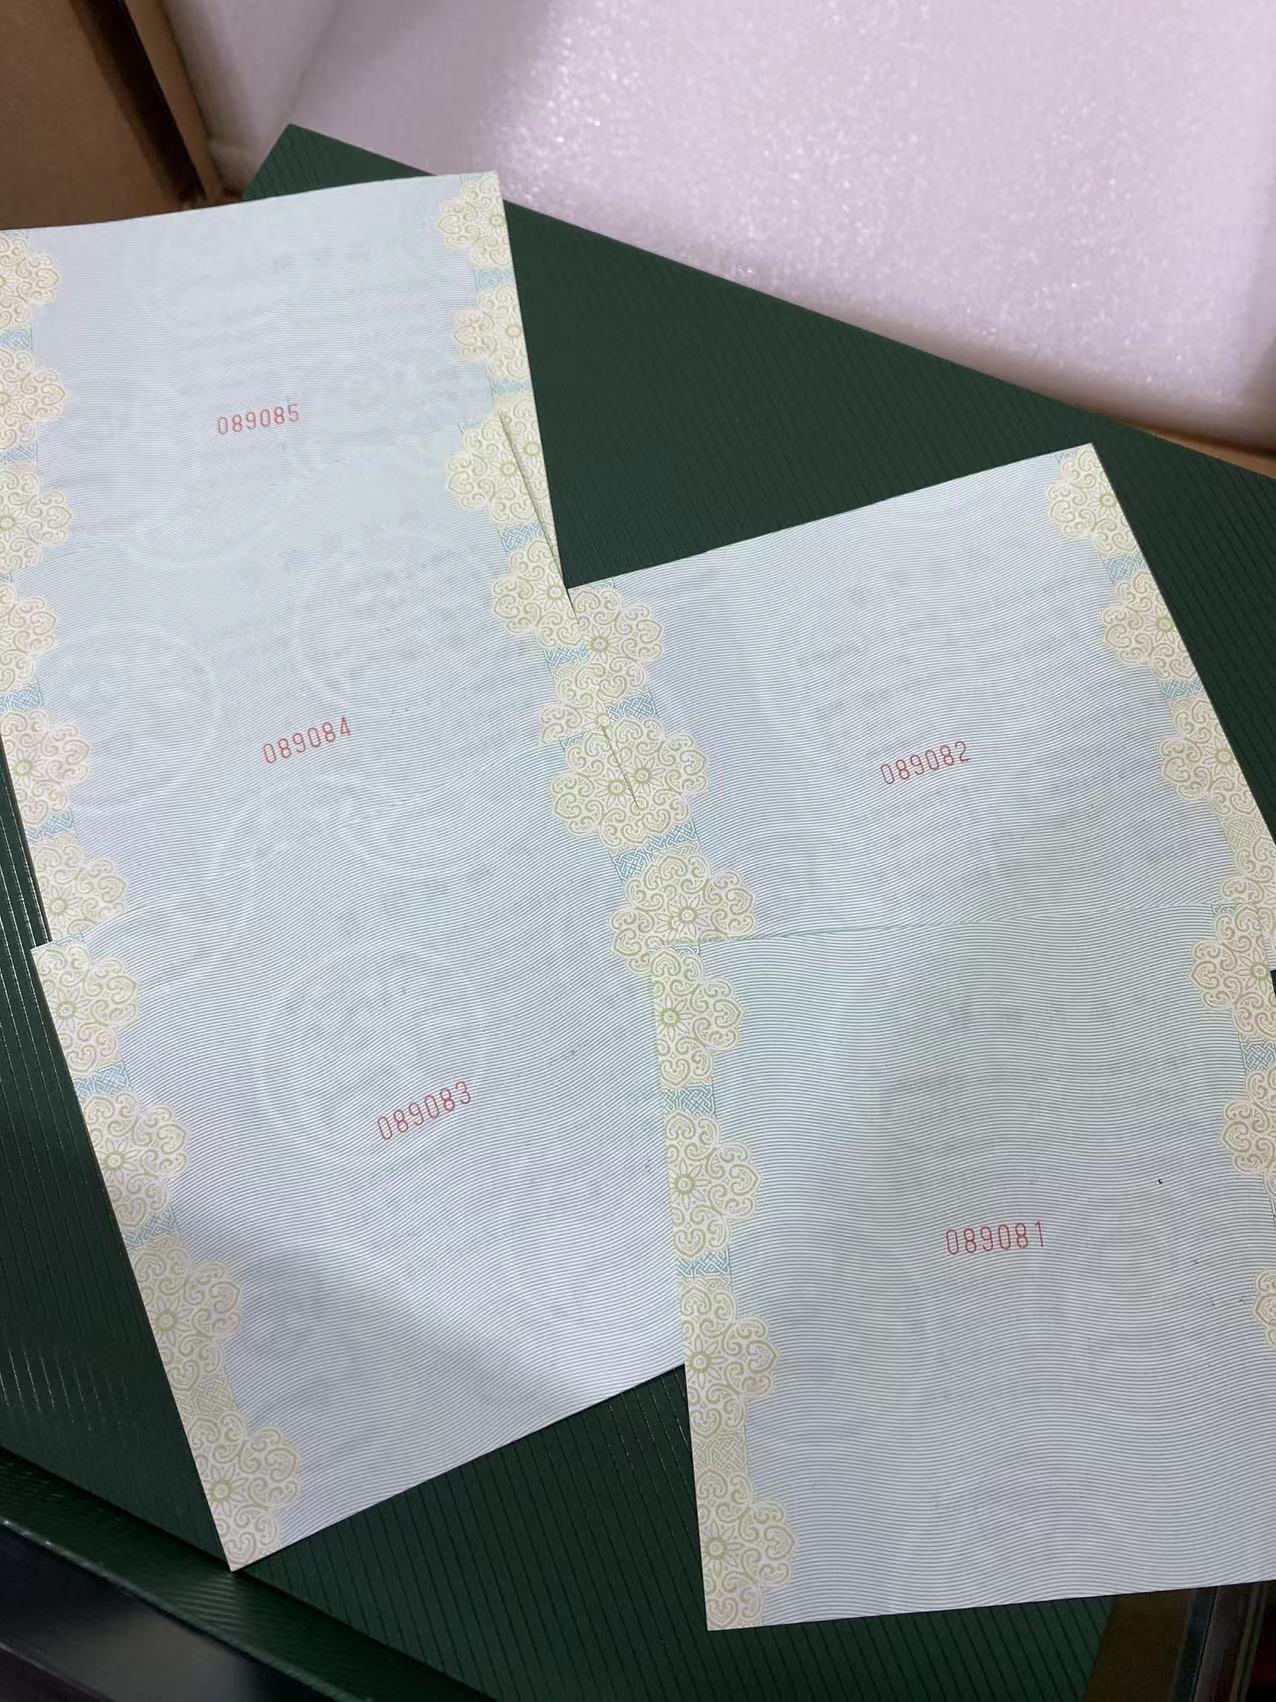 089085
089084
089082
089083
089081